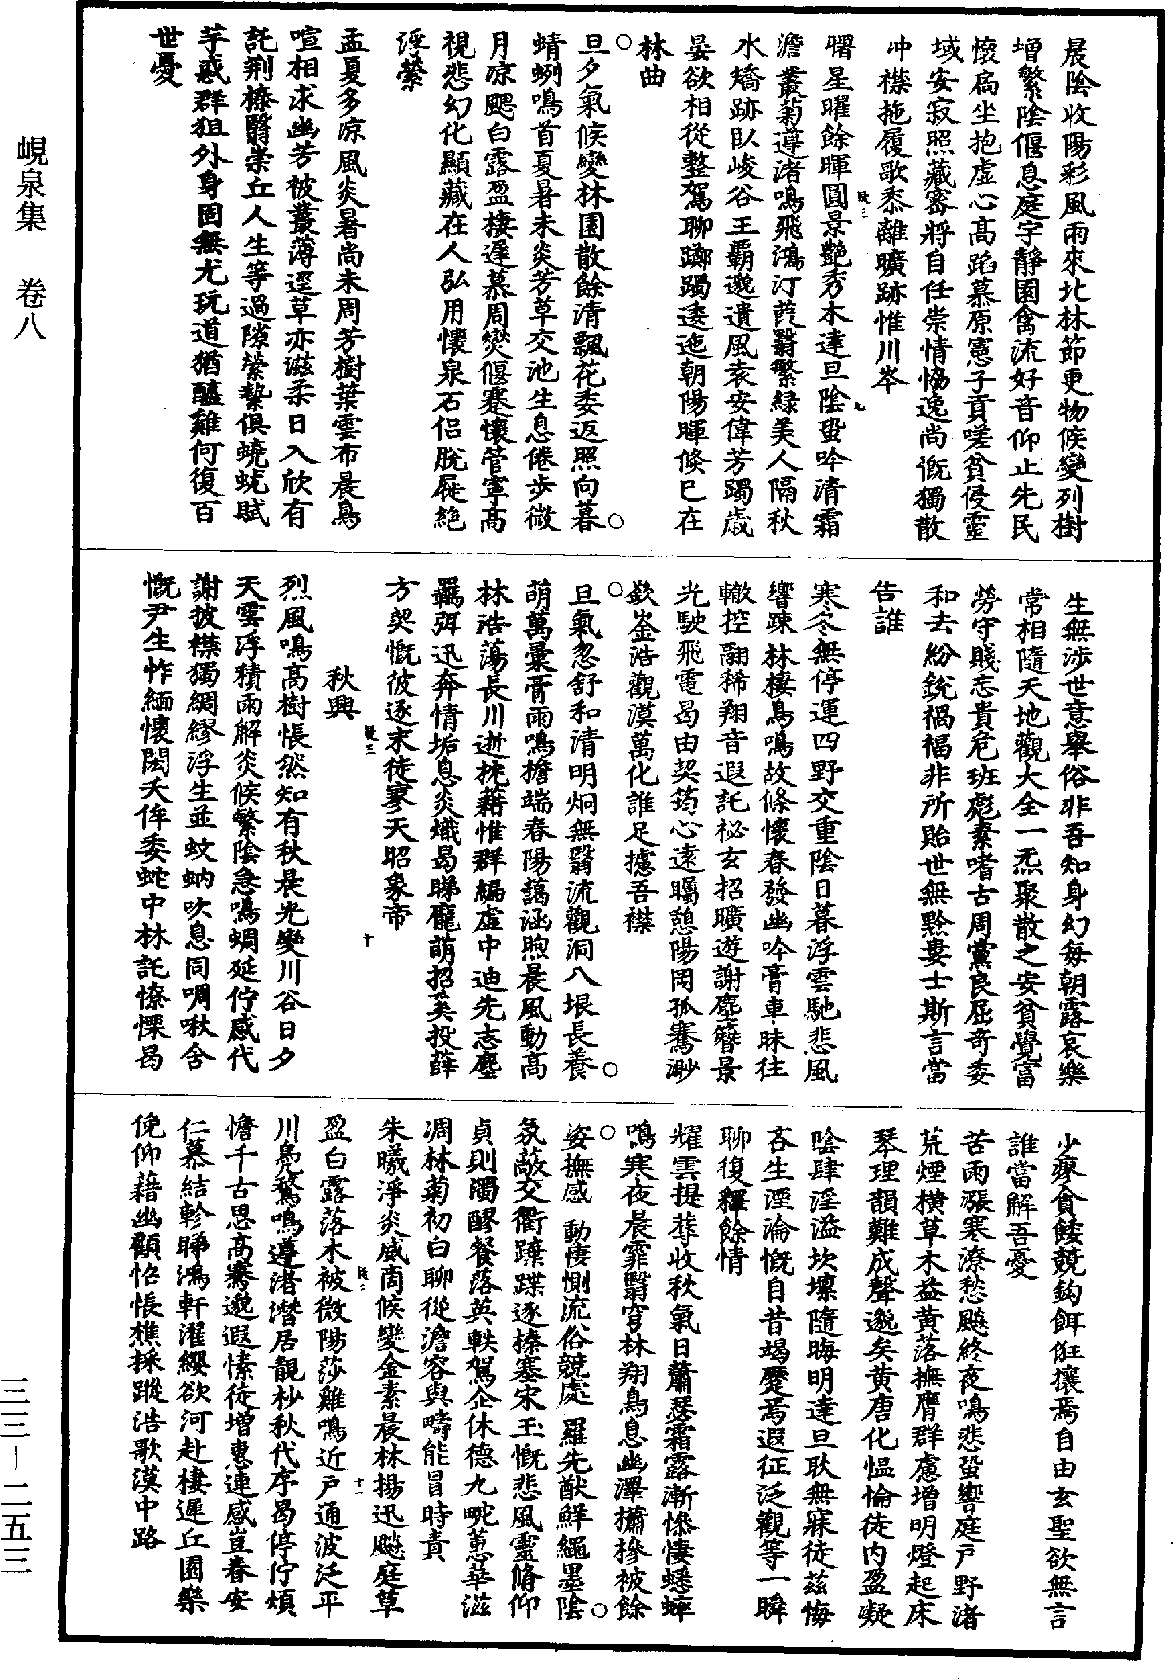 峴泉集　卷八
晨陰收陽彩風雨來北林節更物候變列樹
增繁陰偃息庭宇靜園禽流好音仰止先民
懷扃坐抱虛心高蹈慕原憲子貢嗟貧侵靈
域安寂照藏密將自任崇情恊逸尚慨獨散
冲襟拖履歌黍離曠跡惟川岑
曙星曜餘暉圓景艷秀木達旦陰蛩吟清霜
澹叢菊遵渚鳴飛鴻汀葭翳繁緑美人隔秋
水矯跡臥峻谷王霸邈遺風袁安偉芳躅歲
晏欲相從整駕聊躑躅逶迤朝陽暉倏已在
林曲
旦夕氣候變林園散餘清飄花委返照向暮
蜻蛚鳴首夏暑未炎芳草交池生息倦步微
月凉颸白露盈棲遲慕周爕偃蹇懷管寧高
視悲幻化顯藏在人弘用懷泉石侣脫屣絶
浮縈
孟夏多凉風炎暑尚未周芳樹葉雲布晨鳥
喧相求幽芳被叢薄逕草亦滋柔日入欣有
託荆榛翳崇丘人生等過隙縈縶俱蟯蚘賦
芧惑群狙外身固無尤玩道猶醯雞何復百
世憂
生無涉世意舉俗非吾知身幻每朝露哀樂
常相隨天地觀大全一炁聚散之安貧覺富
勞守賤志貴危班彪素嗜古周黨良屈奇委
和去紛銳禍福非所貽世無黔婁士斯言當
告誰
寒冬無停運四野交重陰日暮浮雲馳悲風
響踈林棲鳥鳴故條懷春發幽吟膏車昧往
轍控翮稀翔音遐託秘玄招曠遊謝塵簪景
光駛飛電曷由契筠心遠矚憩陽岡孤騫渺
嶔崟浩觀漠萬化誰足攄吾襟
旦氣忽舒和清明炯無翳流觀洞八垠長養
萌萬彙膏雨鳴檐端春陽藹涵煦晨風動高
林浩蕩長川逝挽藉惟群編虛中迪先志塵
羈弭迅奔情垢息炎熾曷睇龐萌招羙投薛
方契慨彼逐末徒寥天昭象帝
秋興
烈風鳴高樹悵然知有秋晨光變川谷日夕
天雲浮積雨解炎候繁陰急鳴蜩延佇感代
謝披襟獨綢繆浮生並蚊蚋吹息同啁啾舍
慨尹生怍緬懷閎夭侔委蛇中林託憭慄曷
少瘳貪餒競鈎餌伾攘焉自由玄聖欲無言
誰當解吾憂
苦雨漲寒潦愁飈終夜鳴悲蛩響庭戶野渚
荒煙橫草木益黃落撫膺群慮增明燈起床
琴理韻難成聲邈矣黄唐化愠惀徒内盈凝
陰肆淫溢坎壈隨晦明達旦耿無寐徒茲悔
吝生湮淪慨自昔竭蹷焉遐征泛觀等一瞬
聊復釋餘情
耀雲提莽收秋氣日蕭瑟霜露漸慘悽蟋蟀
鳴寒夜晨霏翳穹林翔鳥息幽澤櫹槮被餘
姿撫感動悽惻流俗競處羅先猷鮮繩墨陰
氛蔽交衢蹂蹀逐榛塞宋玉慨悲風靈脩仰
貞則濁醪餐落英軼駕企休德九畹蕙華滋
凋林菊初白聊從澹容與疇能冒時責
朱曦淨炎威商候變金素晨林揚迅飈庭草
盈白露落木被微陽莎雞鳴近戶通波泛平
川鳧鶩鳴遵渚潛居靚杪秋代序曷停佇煩
憺千古思高騫邈遐愫徒增惠連感豈眷安
仁慕結軫睇鴻軒濯纓欲河赴棲遲丘園樂
俛仰藉幽顧怊悵樵採蹤浩歌漠中路
三三－二五三